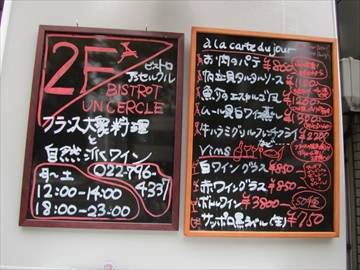 2F
ビストロ
アンセルクル
BISTROT
UN CERCLE
フランス大衆料理
と
自然派ワイン
月〜土
022-796-4337
12:00-14:00
18:00-23:00
à la carte du jour
お肉のパテ ¥800
帆立貝タルタルソース
ムール貝白ワイン蒸し
牛ハラミグリル
vins
白ワイングラス ¥850
赤ワイングラス ¥850
ボトルワイン ¥3800〜 50種
サッポロ黒ラベル(生) ¥750